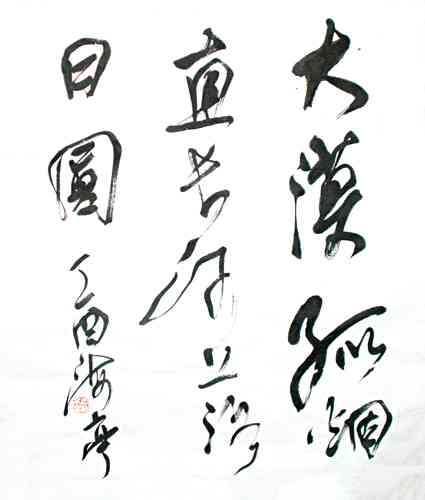 大漠孤烟
直长河落
日圓 丁酉海亭